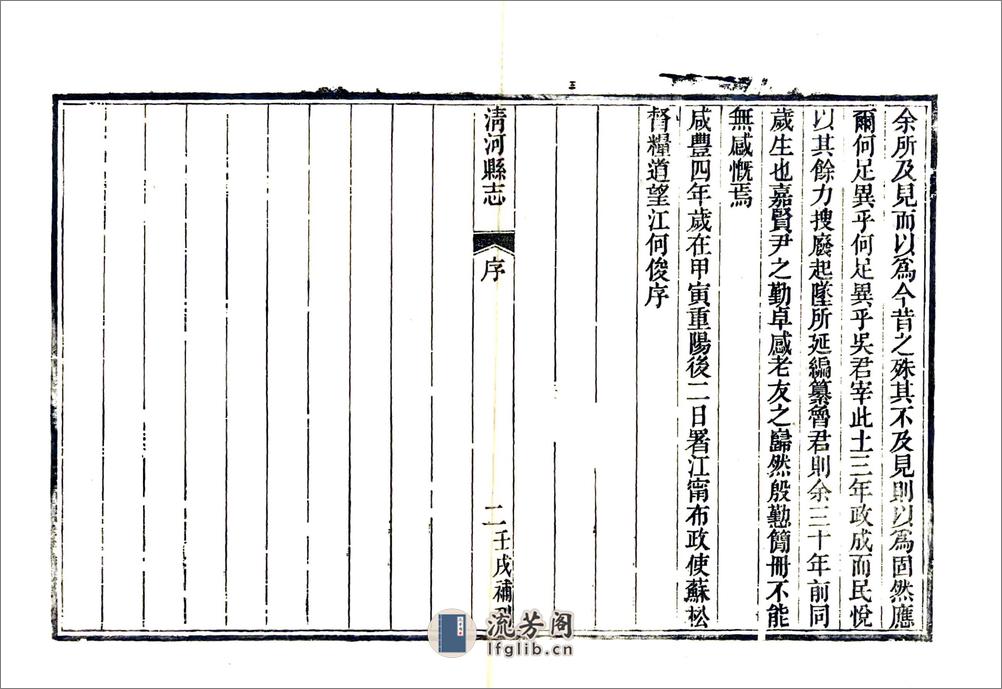 余所及見而以爲今昔之殊其不及見則以爲固然應
爾何足異乎何足異乎吳君宰此土三年政成而民悅
以其餘力搜廢起墜所延編纂魯君則余三十年前同
歲生也嘉賢尹之勤卓感老友之巋然殷懃簡冊不能
無感慨焉
咸豐四年歲在甲寅重陽後二日署江甯布政使蘇松
督糧道望江何俊序
清河縣志
序
二
壬戌補刊
流芳阁
lfglib.cn